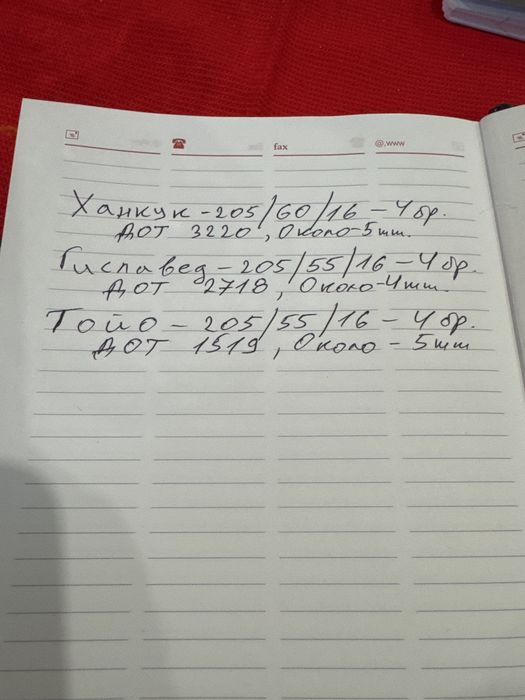 fax
@,www
Ханкук - 205/60/16 - 4 бр.
ДОТ 3220, Около - 5 мм.
Гиславед - 205/55/16 - 4 бр.
ДОТ 2718, Около - 4 мм.
Тойо - 205/55/16 - 4 бр.
ДОТ 1519, Около - 5 мм